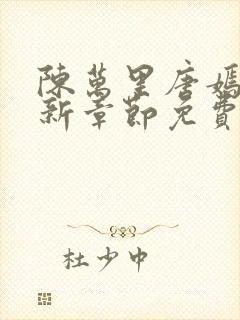 陳萬里唐嫣
新章節免費
杜少中